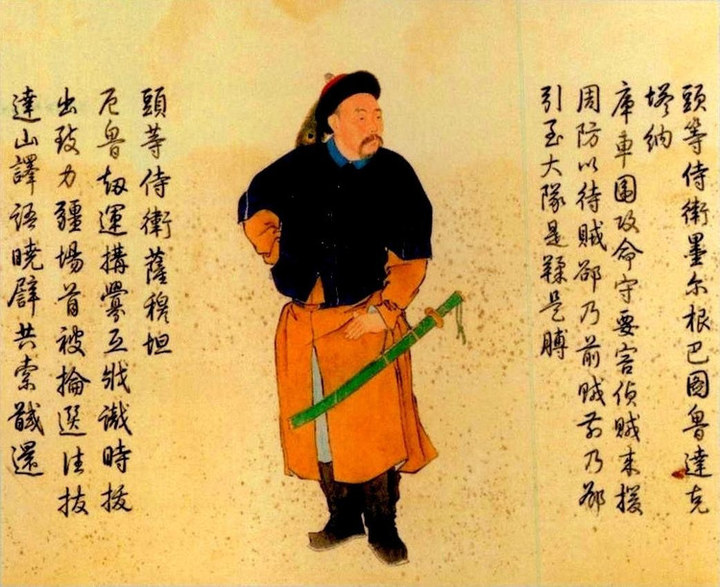 頭等侍衛墨尔根巴圖魯達克
塔納
庫車圍攻命守要害偵賊来援
周防以待賊郤乃前賊前乃郤
引至大隊是鞣是膊
頭等侍衛薩穆坦
厄魯刼運搆釁互戕識時拔
出致力疆場首被掄選往拔
達山譯語曉辟共索馘還